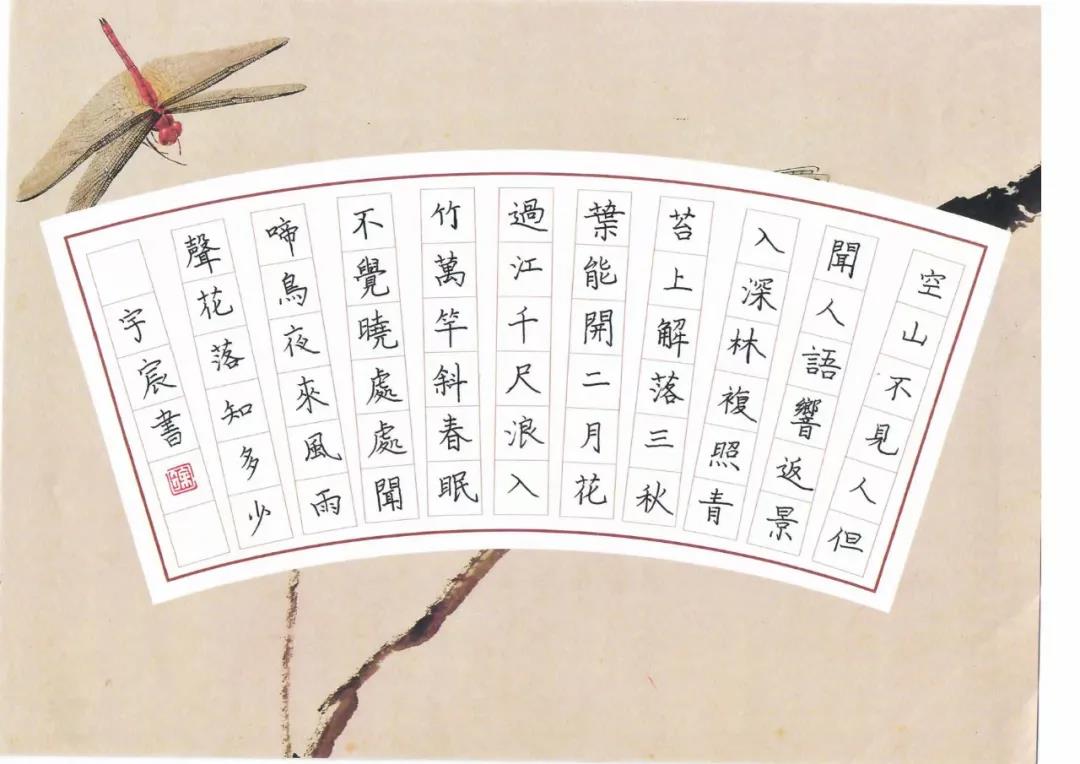 空山不見人但
聞人語響返景
入深林複照青
苔上解落三秋
葉能開二月花
過江千尺浪入
竹萬竿斜春眠
不覺曉處處聞
啼鳥夜來風雨
聲花落知多少
宇宸書